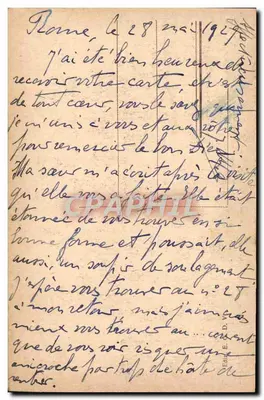 Rome, le 28 mai 1929
J'ai été bien heureux de
recevoir votre carte, et c'est
de tout cœur, vous le savez, que
je m'unis à vous et aux vôtres
pour remercier le bon Dieu
Ma sœur m'a conté après la visite
qu'elle vous Elle était
étonnée de vous trouver en si
bonne forme et poussait, elle
aussi, un soupir de soulagement.
J'espère vous trouver au n° 28
à mon retour, mais j'aimerais
mieux vous trouver au ... couvent
que de vous voir risquer une
anicroche par trop de hâte de
rentrer.
CPAPHIL